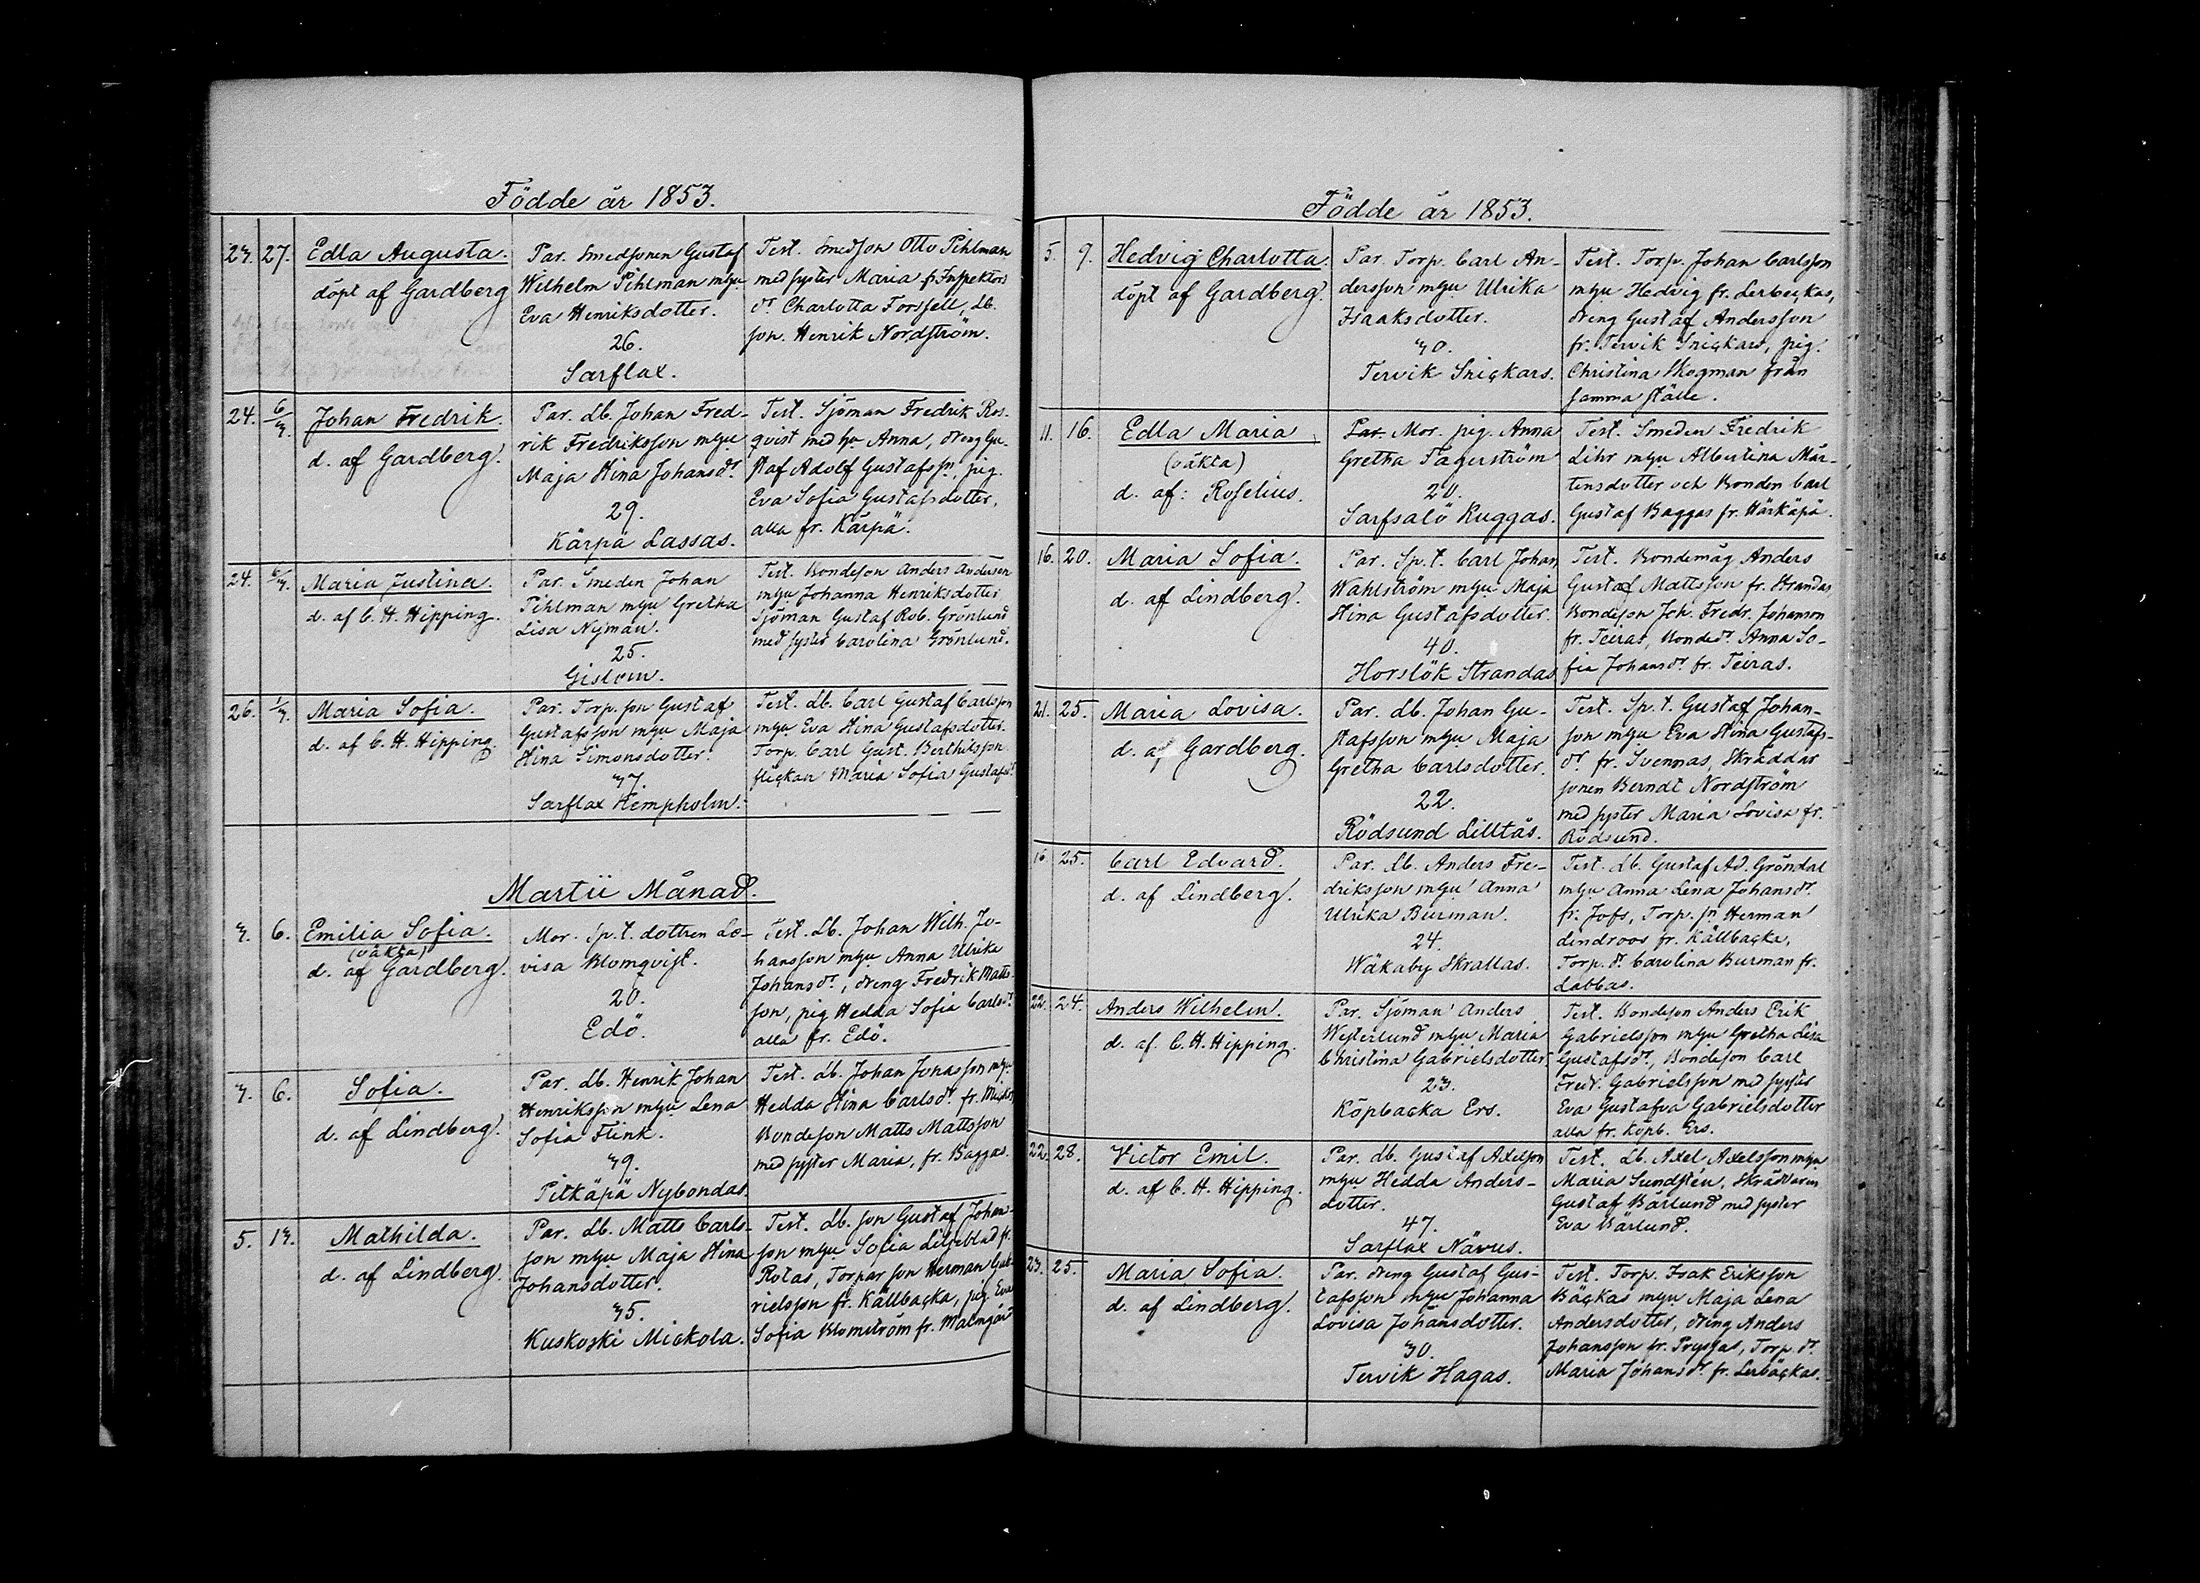 Födde år 1853.
23. 27. Edla Augusta.
döpt af Gardberg
Par. Smedsonen Gustaf
Wilhelm Pihlman m hu
Eva Henriksdotter.
26.
Sarflax.
Test. Smedson Otto Pihlman
med syster Maria, fr. Inspektors
dr Charlotta Forssell, Lb.
son. Henrik Nordström.
24. 6/3. Johan Fredrik.
d. af Gardberg.
Par. Lb. Johan Fred-
rik Fredriksson m hu
Maja Stina Johansdr
29.
Kärpä Lassas.
Test. Sjöman Fredrik Ros-
qvist med hu Anna, dreng Gu-
staf Adolf Gustafssn, pig.
Eva Sofia Gustafsdotter,
alla fr. Kärpä.
24. 6/3. Maria Justina.
d. af C. H. Hipping.
Par. Smeden Johan
Pihlman m hu Gretha
Lisa Nyman.
25.
Gislom.
Test. Bondeson Anders Andersen
m hu Johanna Henriksdotter
Sjöman Gustaf Rob. Grönlund
med syster Carolina Grönlund.
26. 1/3. Maria Sofia.
d. af C. H. Hipping.
Par. Torp. son Gustaf
Gustafsson m hu Maja
Stina Simonsdotter.
37.
Sarflax Hempholm.
Test. Lb. Carl Gustaf Carlsson
m hu Eva Stina Gustafsdotter.
Torp. Carl Gust. Berthilsson
flickan Maria Sofia Gustafsdr
Martii Månad.
3. 6. Emilia Sofia.
(oäkta)
d. af Gardberg.
Mor. Sp. t. dottren Lo-
visa Blomqvist.
20.
Edö.
Test. Lb. Johan Wilh. Jo-
hansson m hu Anna Ulrika
Johansdr, dreng Fredrik Matts-
son, pig Hedda Sofia Carlsdr
alla fr. Edö.
3. 6. Sofia.
d. af Lindberg.
Par. Lb. Henrik Johan
Henriksson m hu Lena
Sofia Flink.
39.
Pitkäpä Nybondas.
Test. Lb. Johan Jonasson m hu
Hedda Stina Carlsdr fr.
Bondeson Matts Mattsson
med syster Maria, fr. Baggas.
5. 13. Mathilda.
d. af Lindberg.
Par. Lb. Matts Carls-
son m hu Maja Stina
Johansdotter.
35.
Kuskoski Mickola.
Test. Lb. son Gustaf Johan-
son m hu Sofia Liljeblad fr.
Rotas, Torpar son Herman Gab-
rielsson fr. Källbacka, pig. Eva
Sofia Blomström fr. Malmgård
Födde år 1853.
5. 9. Hedvig Charlotta.
döpt af Gardberg.
Par. Torp. Carl An-
dersson m hu Ulrika
Isaaksdotter.
30.
Tervik Snickars.
Test. Torp. Johan Carlsson
m hu Hedvig fr. Lerbeckas,
dreng Gustaf Andersson
fr. Tervik Snickars, pig.
Christina Skogman från
samma ställe.
11. 16. Edla Maria
(oäkta)
d. af: Roselius.
Par. Mor. pig. Anna
Gretha Fagerström
20.
Sarfsalö Ruggas.
Test. Smeden Fredrik
Lihr m hu Albertina Mår-
tensdotter och Bonden Carl
Gustaf Baggas fr. Härkäpä.
16. 20. Maria Sofia.
d. af Lindberg.
Par. Sp. t. Carl Johan
Wahlström m hu Maja
Stina Gustafsdotter.
40.
Horslök Strandas
Test. Bondemåg Anders
Gustaf Mattsson fr. Strandas
Bondeson Joh. Fredr. Johanson
fr. Teiras, Bondedr. Anna So-
fia Johansdr fr. Teiras.
21. 25. Maria Lovisa.
d. af Gardberg.
Par. Lb. Johan Gu-
stafsson m hu Maja
Gretha Carlsdotter.
22.
Rödsund Lilltås.
Test. Sp. t. Gustaf Johan-
son m hu Eva Stina Gustafs-
dr fr. Svennas, Skräddar
sonen Berndt Nordström
med syster Maria Lovisa fr.
Rödsund.
16. 25. Carl Edvard.
d. af Lindberg.
Par. Lb. Anders Fre-
driksson m hu Anna
Ulrika Burman.
24.
Wäkaby Skrallas.
Test. Lb. Gustaf Ad. Gröndal
m hu Anna Lena Johansdr
fr. Jofs, Torp. sn Herman
Lindroos fr. Källbacka,
Torp. dr Carolina Burman fr.
Labbas.
22. 24. Anders Wilhelm.
d. af. C. H. Hipping.
Par. Sjöman Anders
Westerlund m hu Maria
Christina Gabrielsdotter.
23.
Köpbacka Ers.
Test. Bondeson Anders Erik
Gabrielsson m hu Gretha Lisa
Gustafsdr, Bondeson Carl
Fredr. Gabrielsson med syster
Eva Gustafva Gabrielsdotter
alla fr. Köpb. Ers.
22. 28. Victor Emil.
d. af C. H. Hipping.
Par. Lb. Gustaf Axelsson
m hu Hedda Anders-
dotter.
47.
Sarflax Nävus.
Test. Lb. Axel Axelsson m hu
Maria Sundstén, Skräddaren
Gustaf Bärlund med syster
Eva Bärlund.
23. 25. Maria Sofia.
d. af Lindberg.
Par. dreng Gustaf Gus-
tafsson m hu Johanna
Lovisa Johansdotter.
30.
Tervik Hagas.
Test. Torp. Isak Eriksson
Bäckas m hu Maja Lena
Andersdotter, dreng Anders
Johansson fr. Prysgas, Torp. dr
Maria Johansdr fr. Lerbäckas.